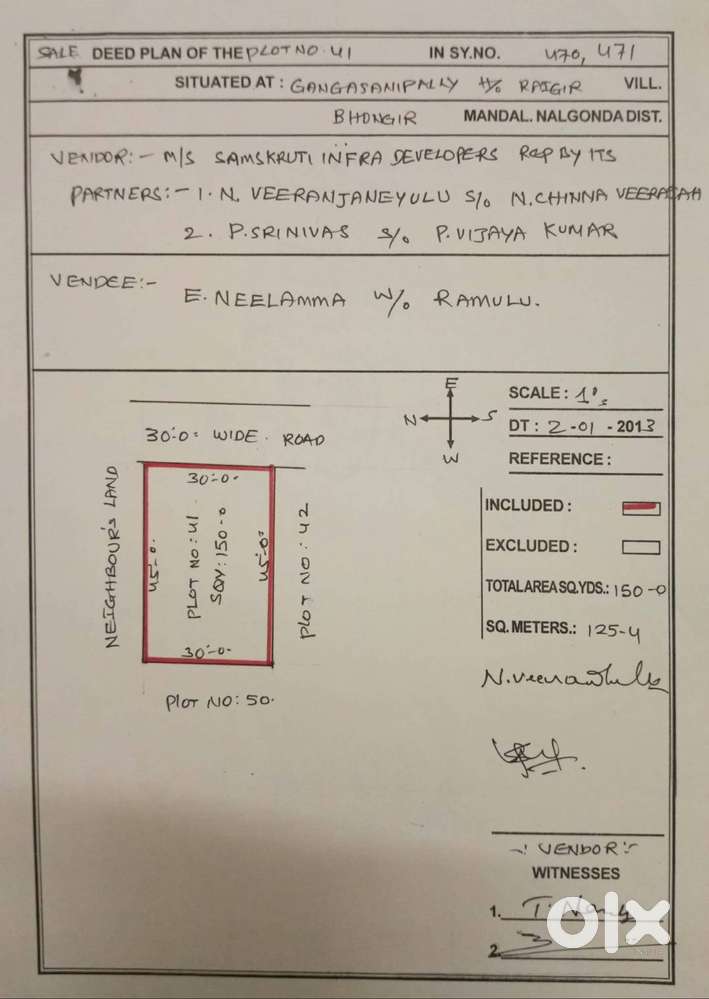 SALE DEED PLAN OF THE PLOT NO. 41 IN SY.NO. 470, 471
SITUATED AT : GANGASANIPALLY H/o RAIGIR VILL.
BHONGIR MANDAL. NALGONDA DIST.
VENDOR:- M/S SAMSKRUTI INFRA DEVELOPERS REP BY ITS
PARTNERS:- 1. N. VEERANJANEYULU S/o N. CHINNA VEERAIAH
2. P. SRINIVAS S/o P. VIJAYA KUMAR
VENDEE:-
E. NEELAMMA W/o RAMULU.
E
N S
W
SCALE : 1":
DT : 2-01-2013
REFERENCE :
30'-0" WIDE. ROAD
NEIGHBOUR'S LAND
30'-0"
45'-0"
PLOT NO: 41
SQY: 150-0
45'-0"
30'-0"
PLOT NO: 42
PLOT NO: 50.
INCLUDED :
EXCLUDED :
TOTAL AREA SQ.YDS.: 150-0
SQ. METERS.: 125-4
-: VENDOR:-
WITNESSES
1.
2.
olx